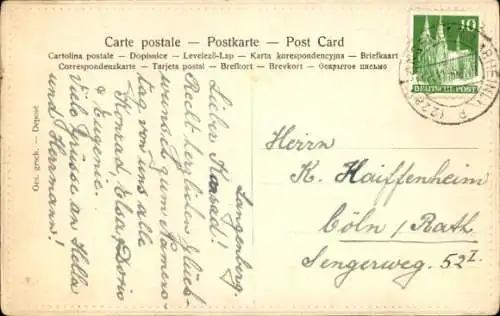 Carte postale — Postkarte — Post Card
Cartolina postale — Dopisnice — Levelező-Lap — Karta korespondencyjna — Briefkaart
Correspondenzkarte — Tarjeta postal — Brefkort — Brevkort — Открытое письмо
10
DEUTSCHE POST
Ges. gesch. — Deposé
Langenberg.
Lieber Konrad!
Recht herzlichen Glück-
wunsch zum Namens-
tag von uns alle
Konrad, Elsa, Doris
& Eugenie.
Viele Grüsse an Hella
und Herrmann!
Herrn
K. Haiffenheim
Cöln / Rath
Sengerweg. 52 I.